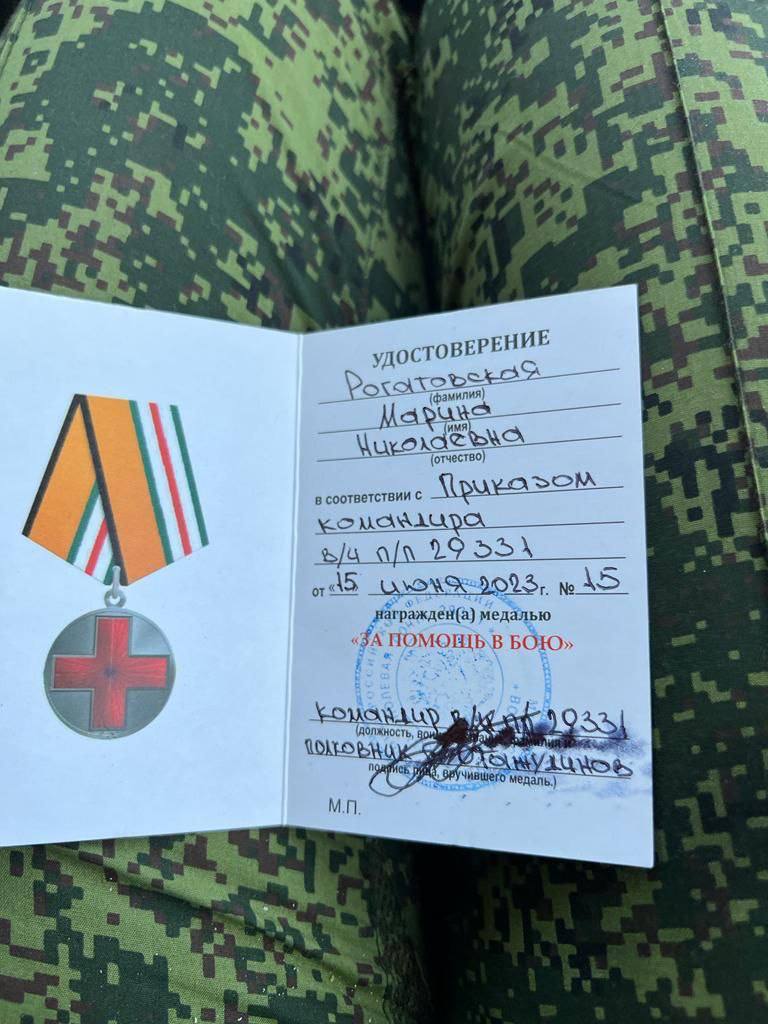 УДОСТОВЕРЕНИЕ
Рогатовская
(фамилия)
Марина
(имя)
Николаевна
(отчество)
в соответствии с Приказом
командира
в/ч п/п 29331
от «15» июня 2023г. № 15
награжден(а) медалью
«ЗА ПОМОЩЬ В БОЮ»
командир в/ч пп 29331
(должность, фамилия и
полковник
подпись лица, вручившего медаль.)
М.П.